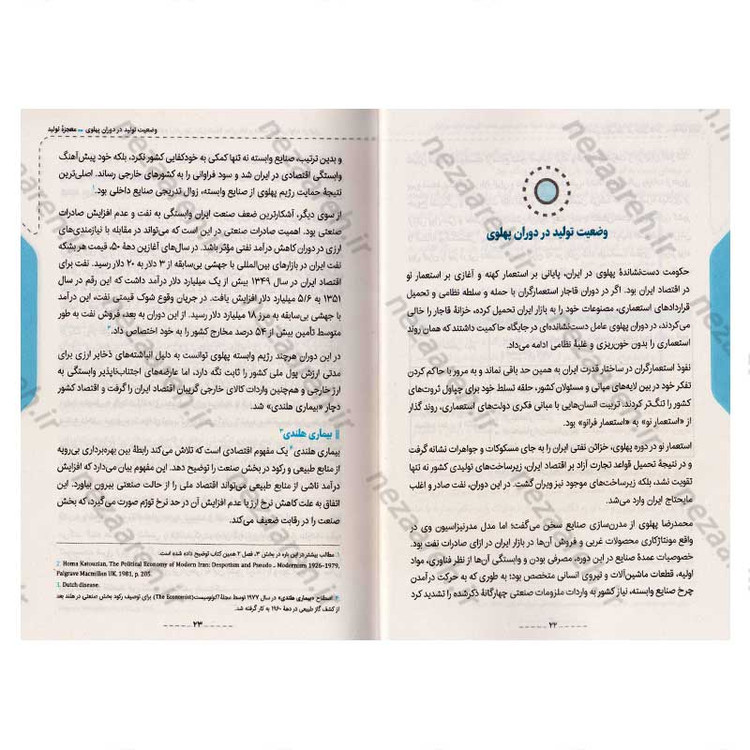 وضعیت تولید در دوران پهلوی
حکومت دست‌نشاندهٔ پهلوی در ایران، پایانی بر استعمار کهنه و آغازی بر استعمار نو
در اقتصاد ایران بود. اگر در دوران قاجار استعمارگران با حمله و سلطه نظامی و تحمیل
قراردادهای استعماری، مصنوعات خود را به بازار ایران تحمیل کرده، خزانهٔ قاجار را خالی
می‌کردند، در دوران پهلوی عامل دست‌نشانده‌ای در جایگاه حاکمیت داشتند که همان روند
استعماری را بدون خون‌ریزی و غلبهٔ نظامی ادامه می‌داد.
نفوذ استعمارگران در ساختار قدرت ایران به همین حد باقی نماند و به مرور با حاکم کردن
تفکر خود در بین لایه‌های میانی و مسئولان کشور، حلقه تسلط خود برای چپاول ثروت‌های
کشور را تنگ‌تر کردند. تربیت انسان‌هایی با مبانی فکری دولت‌های استعماری، روند گذار
از «استعمار نو» به «استعمار فرانو» بود.
استعمار نو در دوره پهلوی، خزائن نفتی ایران را به جای مسکوکات و جواهرات نشانه گرفت
و در نتیجهٔ تحمیل قواعد تجارت آزاد بر اقتصاد ایران، زیرساخت‌های تولیدی کشور نه تنها
تقویت نشد، بلکه زیرساخت‌های موجود نیز ویران گشت. در این دوران، نفت صادر و اغلب
مایحتاج ایران وارد می‌شد.
محمدرضا پهلوی از مدرن‌سازی صنایع سخن می‌گفت؛ اما مدل مدرنیزاسیون وی در
واقع مونتاژکاری محصولات غربی و فروش آن‌ها در بازار ایران در ازای صادرات نفت بود.
خصوصیات عمدهٔ صنایع در این دوره، مصرفی بودن و وابستگی آن‌ها از نظر فناوری، مواد
اولیه، قطعات ماشین‌آلات و نیروی انسانی متخصص بود؛ به طوری که به حرکت درآمدن
چرخ صنایع وابسته، نیاز کشور به واردات ملزومات صنعتی چهارگانهٔ ذکرشده را تشدید کرد
۲۲
وضعیت تولید در دوران پهلوی ** معجزهٔ تولید
و بدین ترتیب، صنایع وابسته نه تنها کمکی به خودکفایی کشور نکرد، بلکه خود پیش‌آهنگ
وابستگی اقتصادی در ایران شد و سود فراوانی را به کشورهای خارجی رساند. اصلی‌ترین
نتیجهٔ حمایت رژیم پهلوی از صنایع وابسته، زوال تدریجی صنایع داخلی بود.۱
از سوی دیگر، آشکارترین ضعف صنعت ایران وابستگی به نفت و عدم افزایش صادرات
صنعتی بود. اهمیت صادرات صنعتی در این است که می‌تواند در مقابله با نیازمندی‌های
ارزی در دوران کاهش درآمد نفتی مؤثر باشد. در سال‌های آغازین دههٔ ۵۰، قیمت هر بشکه
نفت ایران در بازارهای بین‌المللی با جهشی بی‌سابقه از ۳ دلار به ۲۰ دلار رسید. نفت برای
اقتصاد ایران در سال ۱۳۴۹ بیش از یک میلیارد دلار درآمد داشت که این رقم در سال
۱۳۵۱ به ۵/۶ میلیارد دلار افزایش یافت. در جریان وقوع شوک قیمتی نفت، این درآمد
با جهشی بی‌سابقه به مرز ۱۸ میلیارد دلار رسید. از این دوران به بعد، فروش نفت به طور
متوسط تأمین بیش از ۵۴ درصد مخارج کشور را به خود اختصاص داد.۲
در این دوران هرچند رژیم وابسته پهلوی توانست به دلیل انباشته‌های ذخایر ارزی برای
مدتی ارزش پول ملی کشور را ثابت نگه دارد، اما عارضه‌های اجتناب‌ناپذیر وابستگی به
ارز خارجی و هم‌چنین واردات کالای خارجی گریبان اقتصاد ایران را گرفت و اقتصاد کشور
دچار «بیماری هلندی» شد.
بیماری هلندی۳
بیماری هلندی۴ یک مفهوم اقتصادی است که تلاش می‌کند رابطهٔ بین بهره‌برداری بی‌رویه
از منابع طبیعی و رکود در بخش صنعت را توضیح دهد. این مفهوم بیان می‌دارد که افزایش
درآمد ناشی از منابع طبیعی می‌تواند اقتصاد ملی را از حالت صنعتی بیرون بیاورد. این
اتفاق به علت کاهش نرخ ارز یا عدم افزایش آن در حد نرخ تورم صورت می‌گیرد، که بخش
صنعت را در رقابت ضعیف می‌کند.
۱. مطالب بیشتر در این باره در بخش ۳، فصل ۲ همین کتاب توضیح داده شده است.
2. Homa Katouzian, The Political Economy of Modern Iran: Despotism and Pseudo _ Modernism 1926–1979,
Palgrave Macmillan UK, 1981, p. 205.
3. Dutch disease.
۴. اصطلاح «بیماری هلندی» در سال ۱۹۷۷ توسط مجلهٔ اکونومیست (The Economist) برای توصیف رکود بخش صنعتی در هلند بعد
از کشف گاز طبیعی در دههٔ ۱۹۶۰ به کار گرفته شد.
۲۳
nezaareh.ir